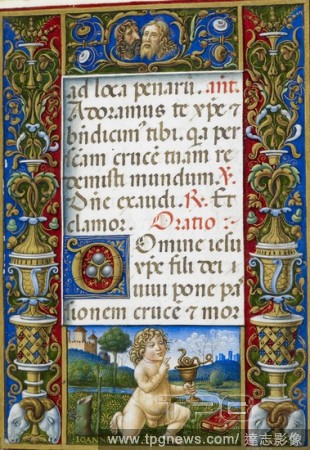 ad loca penarii. ant.
Adoramus te xp̄e ⁊
bn̄dicimus tibi. q̄a per
s̄cam crucē tuam re
demisti mundum ℣.
Dn̄e exaudi. ℟. Et
clamor. Oratio :
Domine iesu
xp̄e fili dei
uiui pone pas
sionem crucē ⁊ mor
IOANN
TPG
www.tpgnews.com/ 達志影像